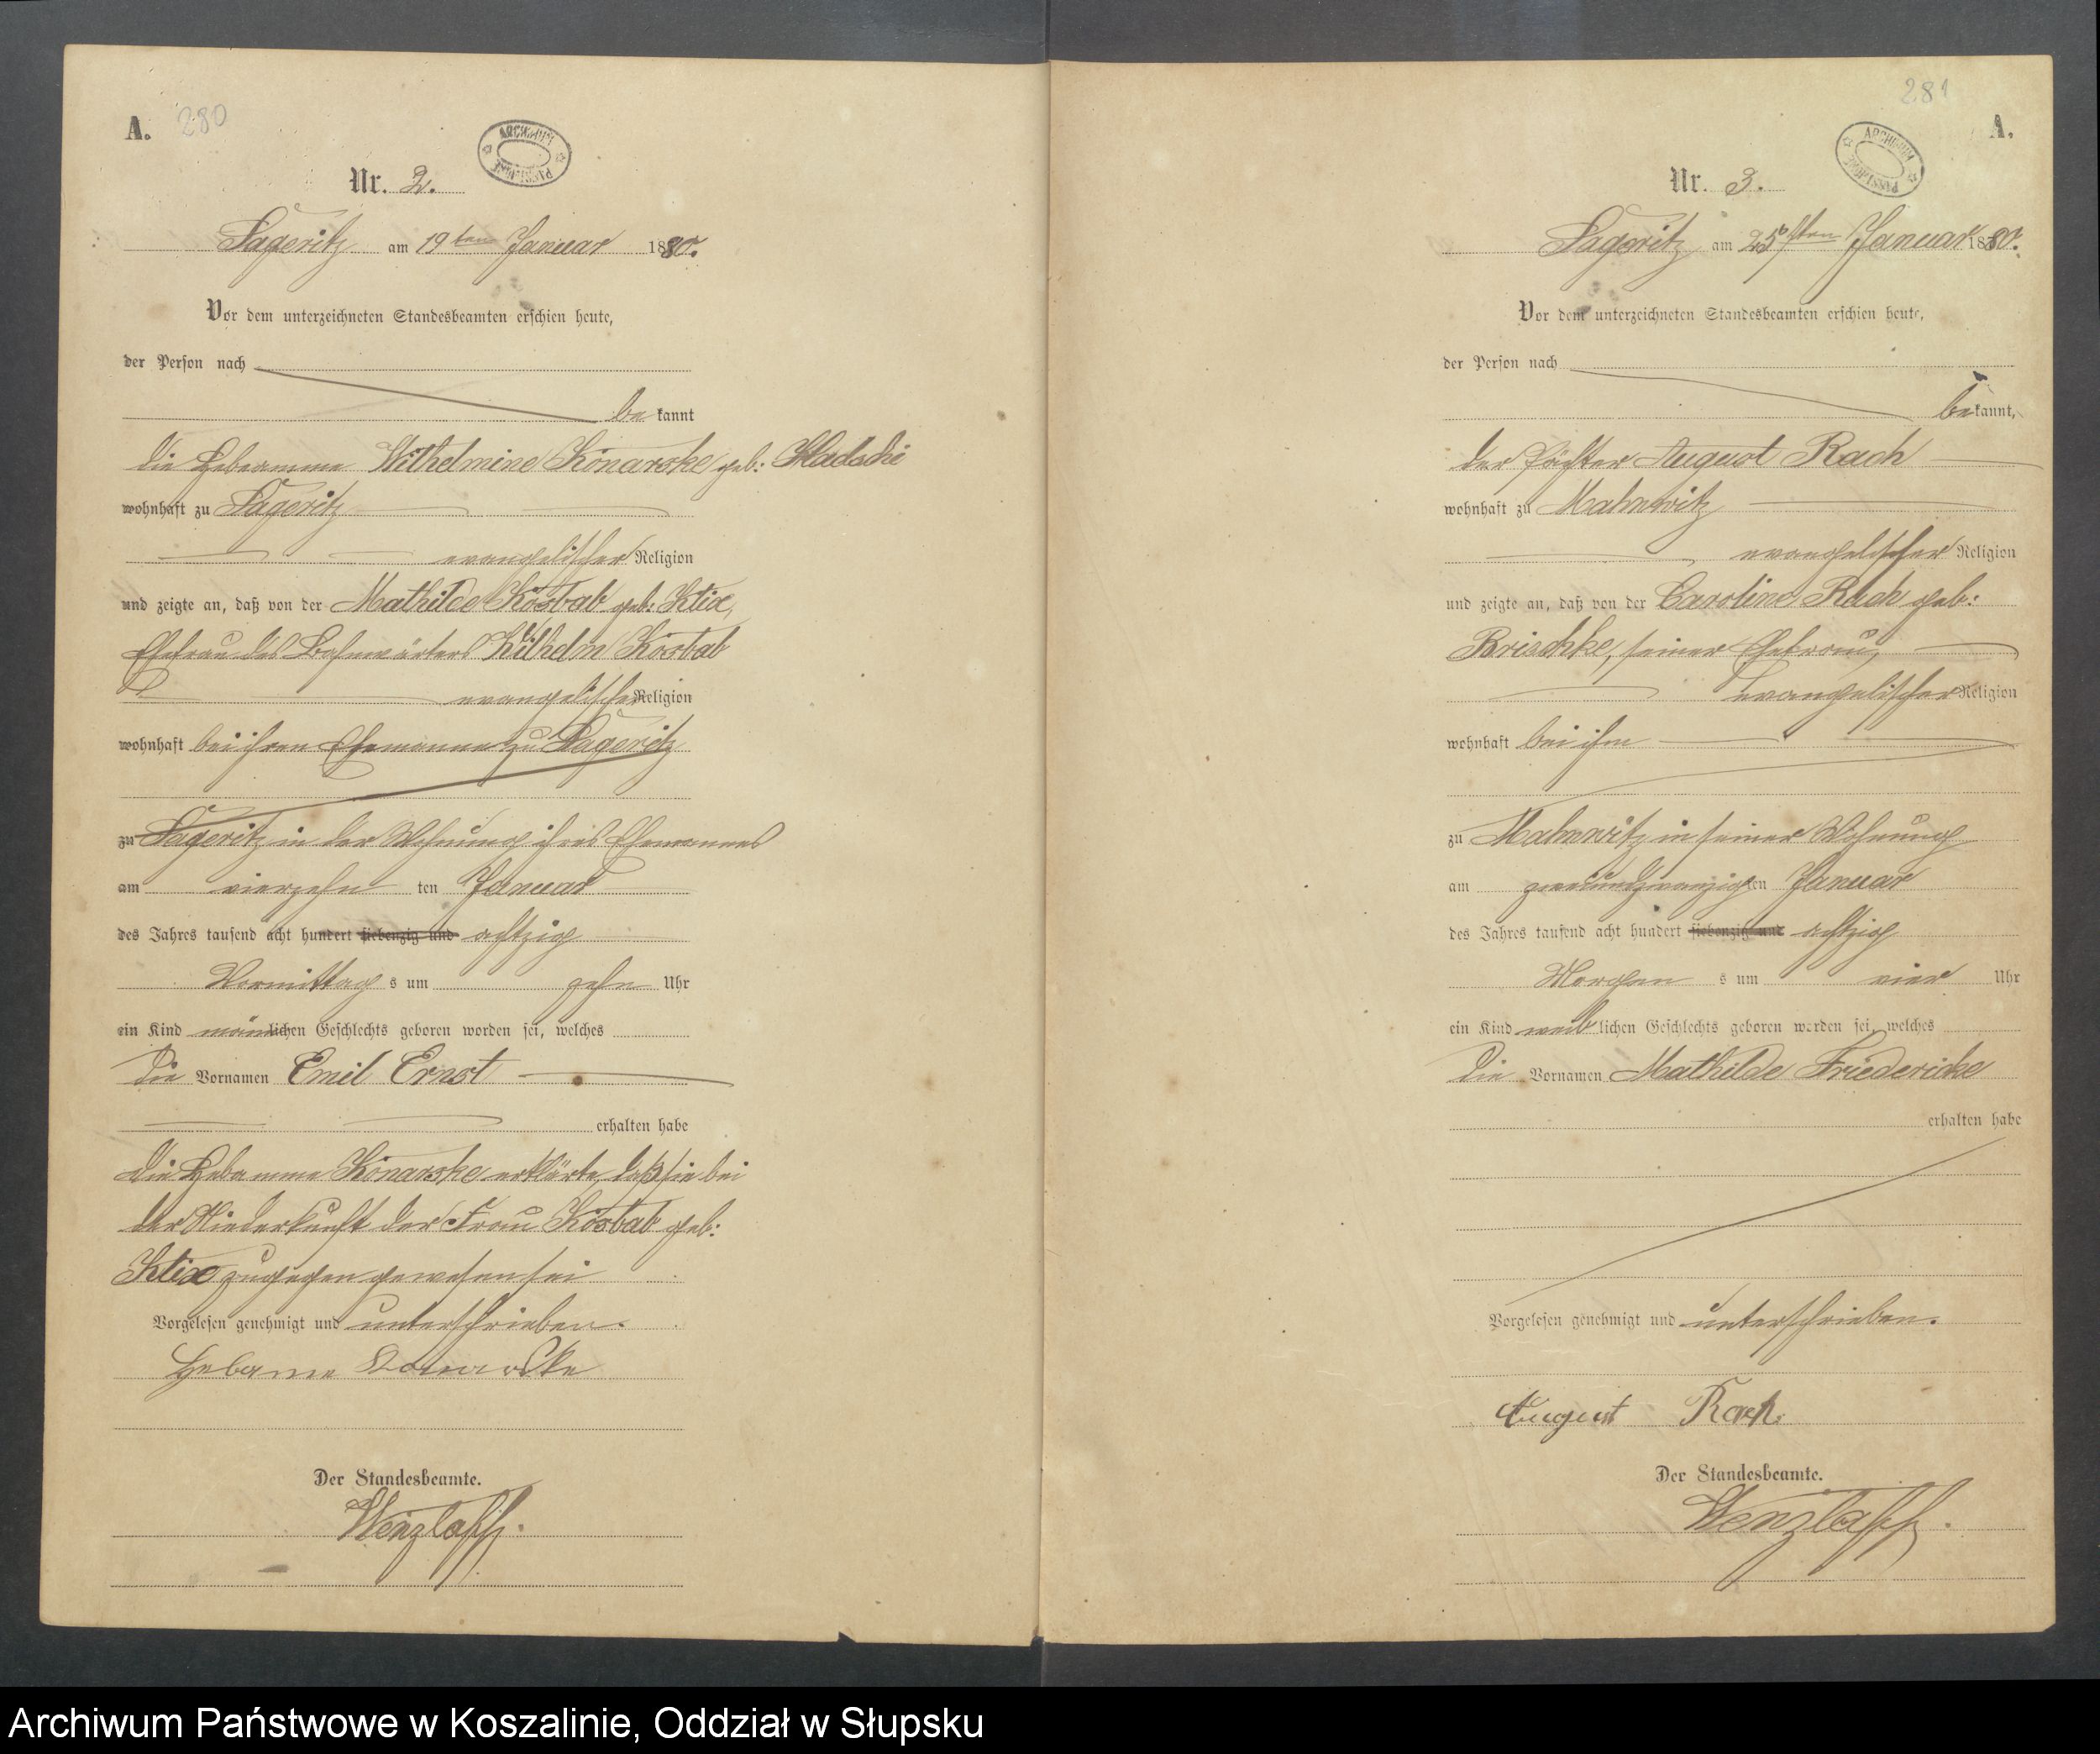 A. 280
ARCHIWUM PAŃSTWOWE
Nr. 2.
Zageritz am 19ten Januar 1880.
Vor dem unterzeichneten Standesbeamten erschien heute,
der Person nach
bekannt
die Hebeamme Wilhelmine Konarske geb:
wohnhaft zu Zageritz
evangelischer Religion
und zeigte an, daß von der Mathilde Kösbab geb: Klix,
Ehefrau des Bahnwärters Wilhelm Kösbab
evangelischer Religion
wohnhaft bei ihren Ehemanne zu Zageritz
zu Zageritz in der Wohnung ihres Ehemannes
am vierzehn ten Januar
des Jahres tausend acht hundert siebenzig und achtzig
Vormittag s um zehn Uhr
ein Kind männlichen Geschlechts geboren worden sei, welches
die Vornamen Emil Ernst
erhalten habe
die Hebamme Konarske erklärte, daß sie bei
der Niederkunft der Frau Kösbab geb:
Klix zugegen gewesen sei
Vorgelesen genehmigt und unterschrieben.
Hebame Konarske
Der Standesbeamte.
Wenzlaff.
281
A.
ARCHIWUM PAŃSTWOWE
Nr. 3.
Zageritz am 25sten Januar 1880.
Vor dem unterzeichneten Standesbeamten erschien heute,
der Person nach
bekannt,
der Pächter August Rach
wohnhaft zu Mahnwitz
evangelischer Religion
und zeigte an, daß von der Caroline Rach geb:
Brischke, seiner Ehefrau,
evangelischer Religion
wohnhaft bei ihm
zu Mahnwitz in seiner Wohnung
am zweiundzwanzigten Januar
des Jahres tausend acht hundert siebenzig und achtzig
Morgen s um vier Uhr
ein Kind weiblichen Geschlechts geboren worden sei, welches
die Vornamen Mathilde Friedericke
erhalten habe
Vorgelesen genehmigt und unterschrieben.
August Rach.
Der Standesbeamte.
Wenzlaff.
Archiwum Państwowe w Koszalinie, Oddział w Słupsku